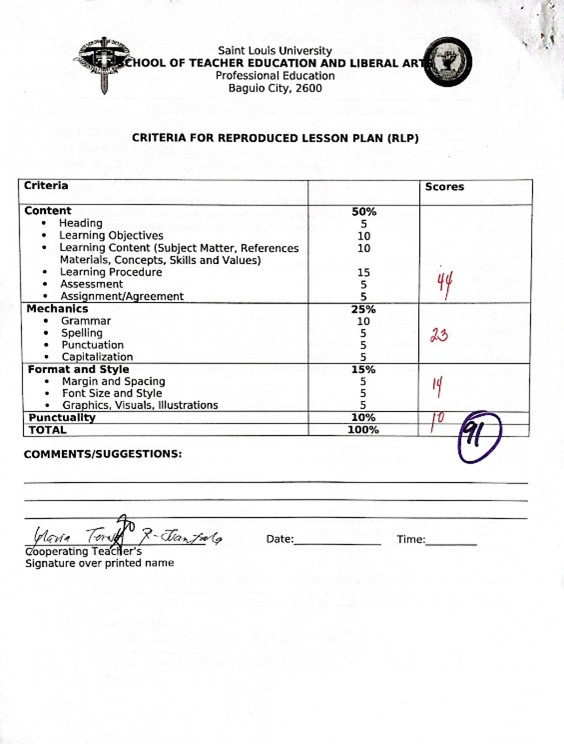 Saint Louis University
SCHOOL OF TEACHER EDUCATION AND LIBERAL ARTS
Professional Education
Baguio City, 2600
CRITERIA FOR REPRODUCED LESSON PLAN (RLP)
Criteria Scores
Content 50%
• Heading 5
• Learning Objectives 10
• Learning Content (Subject Matter, References 10
Materials, Concepts, Skills and Values)
• Learning Procedure 15
• Assessment 5 44
• Assignment/Agreement 5
Mechanics 25%
• Grammar 10
• Spelling 5 23
• Punctuation 5
• Capitalization 5
Format and Style 15%
• Margin and Spacing 5 14
• Font Size and Style 5
• Graphics, Visuals, Illustrations 5
Punctuality 10% 10
TOTAL 100% 91
COMMENTS/SUGGESTIONS:
Date: Time:
Cooperating Teacher's
Signature over printed name